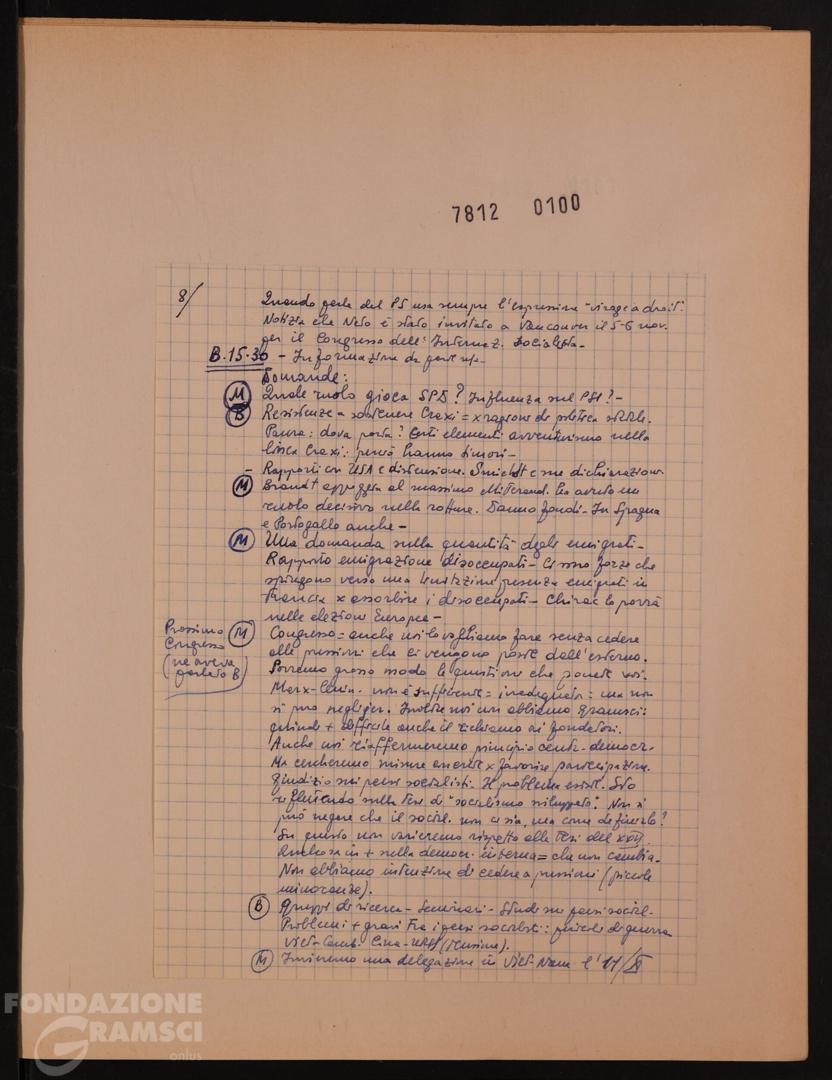 7812 0100
8/
Quando parla del PS usa sempre l'espressione "virage a droit".
Notizia che Neto è stato invitato a Vancouver il 5-6 nov.
per il Congresso dell'Internaz. Socialista-
B.15.30 - Informazione da parte
Domande:
(M) Quale ruolo gioca SPD? Influenza sul PSI? -
(B) Resistenze a sostenere Craxi = x ragioni di politica
Paura: dova porta? Certi elementi avventurismo nella
linea Craxi: perciò hanno timori -
- Rapporti con USA e distensione. Smicht e sue dichiarazioni.
(M) Brandt appoggia al massimo Mitterand. Ha avuto un
ruolo decisivo nella rottura. Danno fondi - In Spagna
e Portogallo anche -
(M) Una domanda sulla quantità degli emigrati -
Rapporto emigrazione disoccupati - Ci sono forze che
spingono verso una presenza emigrati in
Francia x assorbire i disoccupati - Chirac lo porrà
nelle elezioni Europee -
Prossimo
Congresso
(ne aveva
parlato B)
(M) Congresso = anche noi lo vogliamo fare senza cedere
alle pressioni che ci vengono poste dall'esterno.
Porremo grosso modo le questioni che ponete voi.
Marx-Lenin. non è sufficiente = inadeguato: ma non
si può negliger. Inoltre noi non abbiamo Gramsci:
quindi + difficile anche il richiamo ai fondatori.
Anche noi riaffermeremo principio centr. democr.
Ma cercheremo misure concrete x favorire partecipazione.
Giudizio sui paesi socialisti. Il problema esiste. Sto
riflettendo sulla tesi di "socialismo sviluppato". Non si
può negare che il social. non ci sia, ma come definirlo?
Su questo non varieremo rispetto alle tesi del XXII
Qualcosa in + sulla democr. interna = che non cambia.
Non abbiamo intenzione di cedere a pressioni (piccole
minoranze).
(B) Gruppi di ricerca - Seminari - Studi su paesi social.
Problemi + gravi tra i paesi socialisti: pericoli di guerra
Viet-Camb. Cina-URSS (tensione).
(M) Invieremo una delegazione in Viet-Nam l'11/XI
FONDAZIONE
GRAMSCI
onlus